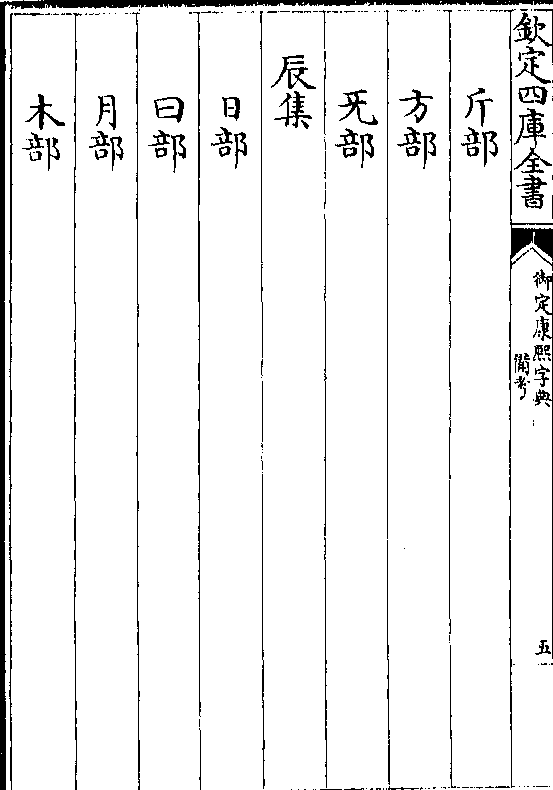 欽定四庫全書
御定康熙字典
備考
五
斤部
方部
旡部
辰集
日部
曰部
月部
木部